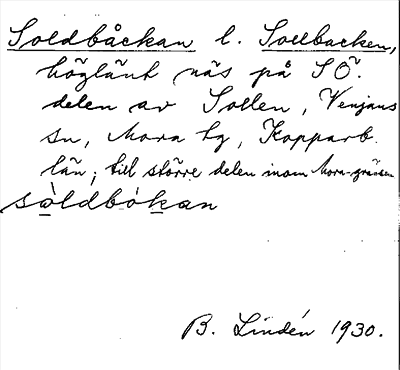 Soldbåckan l. Sollbacken,
höglänt näs på SÖ.
delen av Sollen, Venjans
sn, Mora tg, Kopparb.
län; till större delen inom Mora-gränsen
såldbókan
B. Lindén 1930.